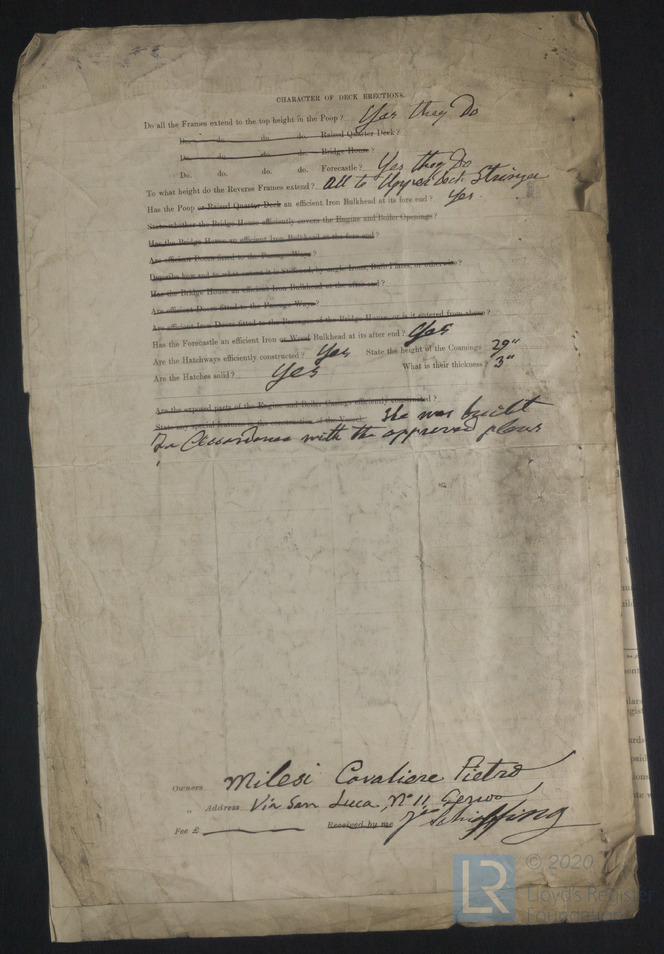 CHARACTER OF DECK ERECTIONS.
Do all the Frames extend to the top height in the Poop? Yes they Do
Do. do. do. do. Raised Quarter Deck?
Do. do. do. do. Bridge House?
Do. do. do. do. Forecastle? Yes they Do
To what height do the Reverse Frames extend? All to Upper Deck Stringer
Has the Poop or Raised Quarter Deck an efficient Iron Bulkhead at its fore end? Yes.
State whether the Bridge House efficiently covers the Engine and Boiler Openings?
Has the Bridge House an efficient Iron Bulkhead at the fore end?
Are efficient Doors fitted to the Passage Ways?
Describe how and to what extent it is Stiffened, by Angle Irons, Bulb Plates, or otherwise?
Has the Bridge House an efficient Iron Bulkhead at the after end?
Are efficient Doors fitted to the Passage Ways?
Are efficient Iron Doors fitted to the of the Bridge House, or is it entered from above?
Has the Forecastle an efficient Iron or Wood Bulkhead at its after end? Yes
Are the Hatchways efficiently constructed? Yes State the height of the Coamings 29"
Are the Hatches solid? Yes What is their thickness? 3"
Are the exposed parts of the Engine and Boiler Casing efficiently constructed?
State any special features in the construction of the Vessel. She was built
In Accordance with the approved plans
Owners Milesi Cavaliere Pietro
" Address Via San Luca, No 11, Genoa
Fee £ Received by me
© 2020
LR
Lloyd's Register
Foundation